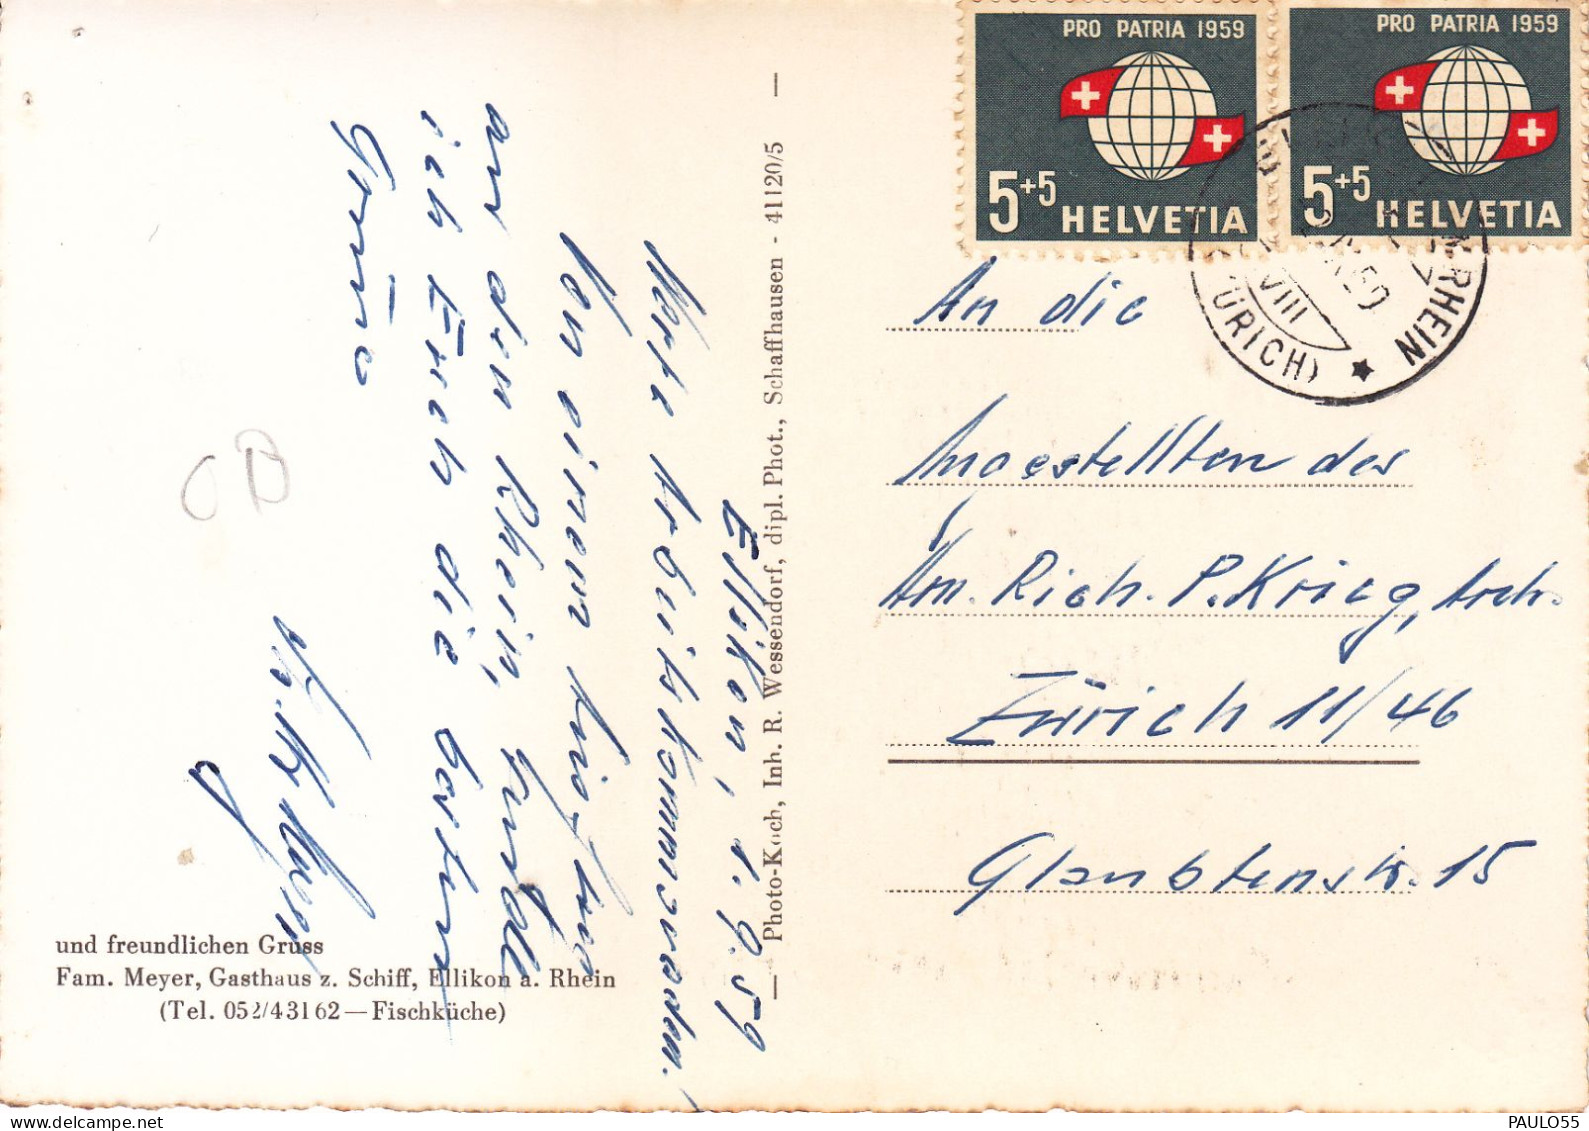 PRO PATRIA 1959
5+5 HELVETIA
PRO PATRIA 1959
5+5 HELVETIA
RHEIN
ÜRICH)
VIII
Ellikon, 1. 9. 59
Werte Arbeitskameraden!
Von einem
an den Rhein, sende
ich Euch die besten
Grüsse
An die
Angestellten des
Rich. P. Krieg, Arch.
Zürich 11/46
Glaubtenstr. 15
Photo-Koch, Inh. R. Wessendorf, dipl. Phot., Schaffhausen - 41120/5
und freundlichen Gruss
Fam. Meyer, Gasthaus z. Schiff, Ellikon a. Rhein
(Tel. 052/43162 — Fischküche)
PAULO55